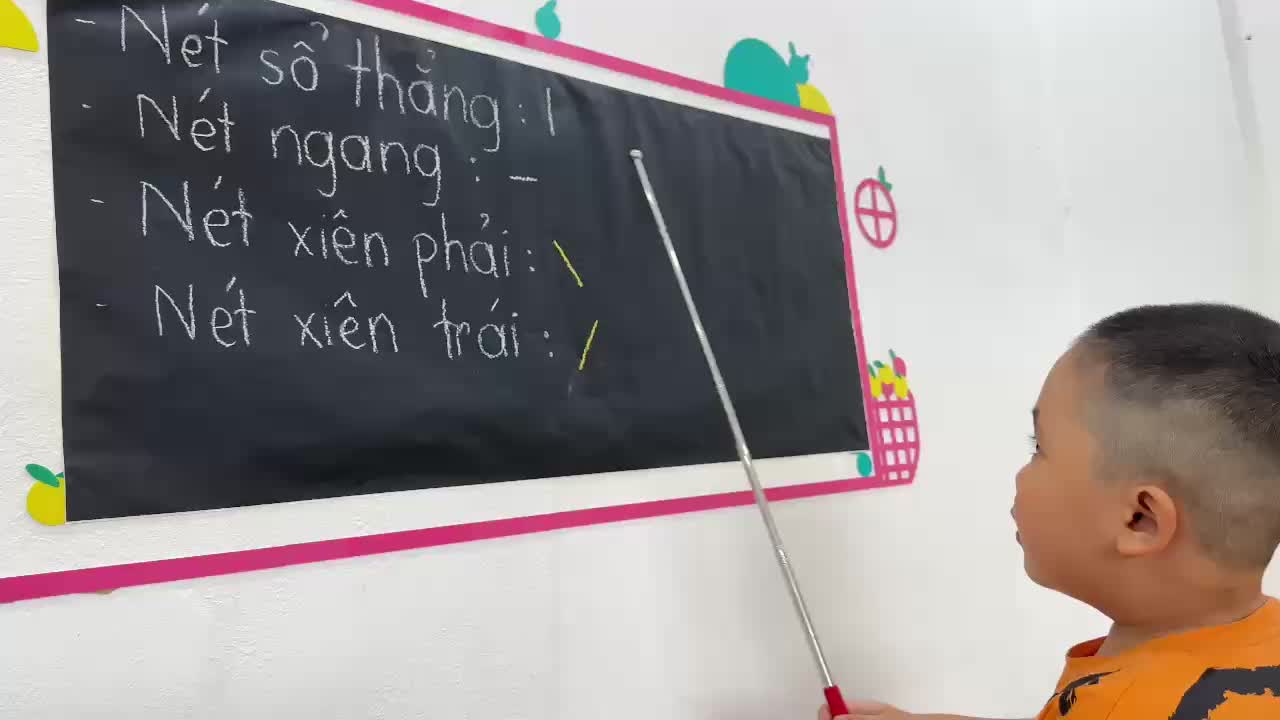 - Nét sổ thẳng : |
- Nét ngang : –
- Nét xiên phải : \
- Nét xiên trái : /